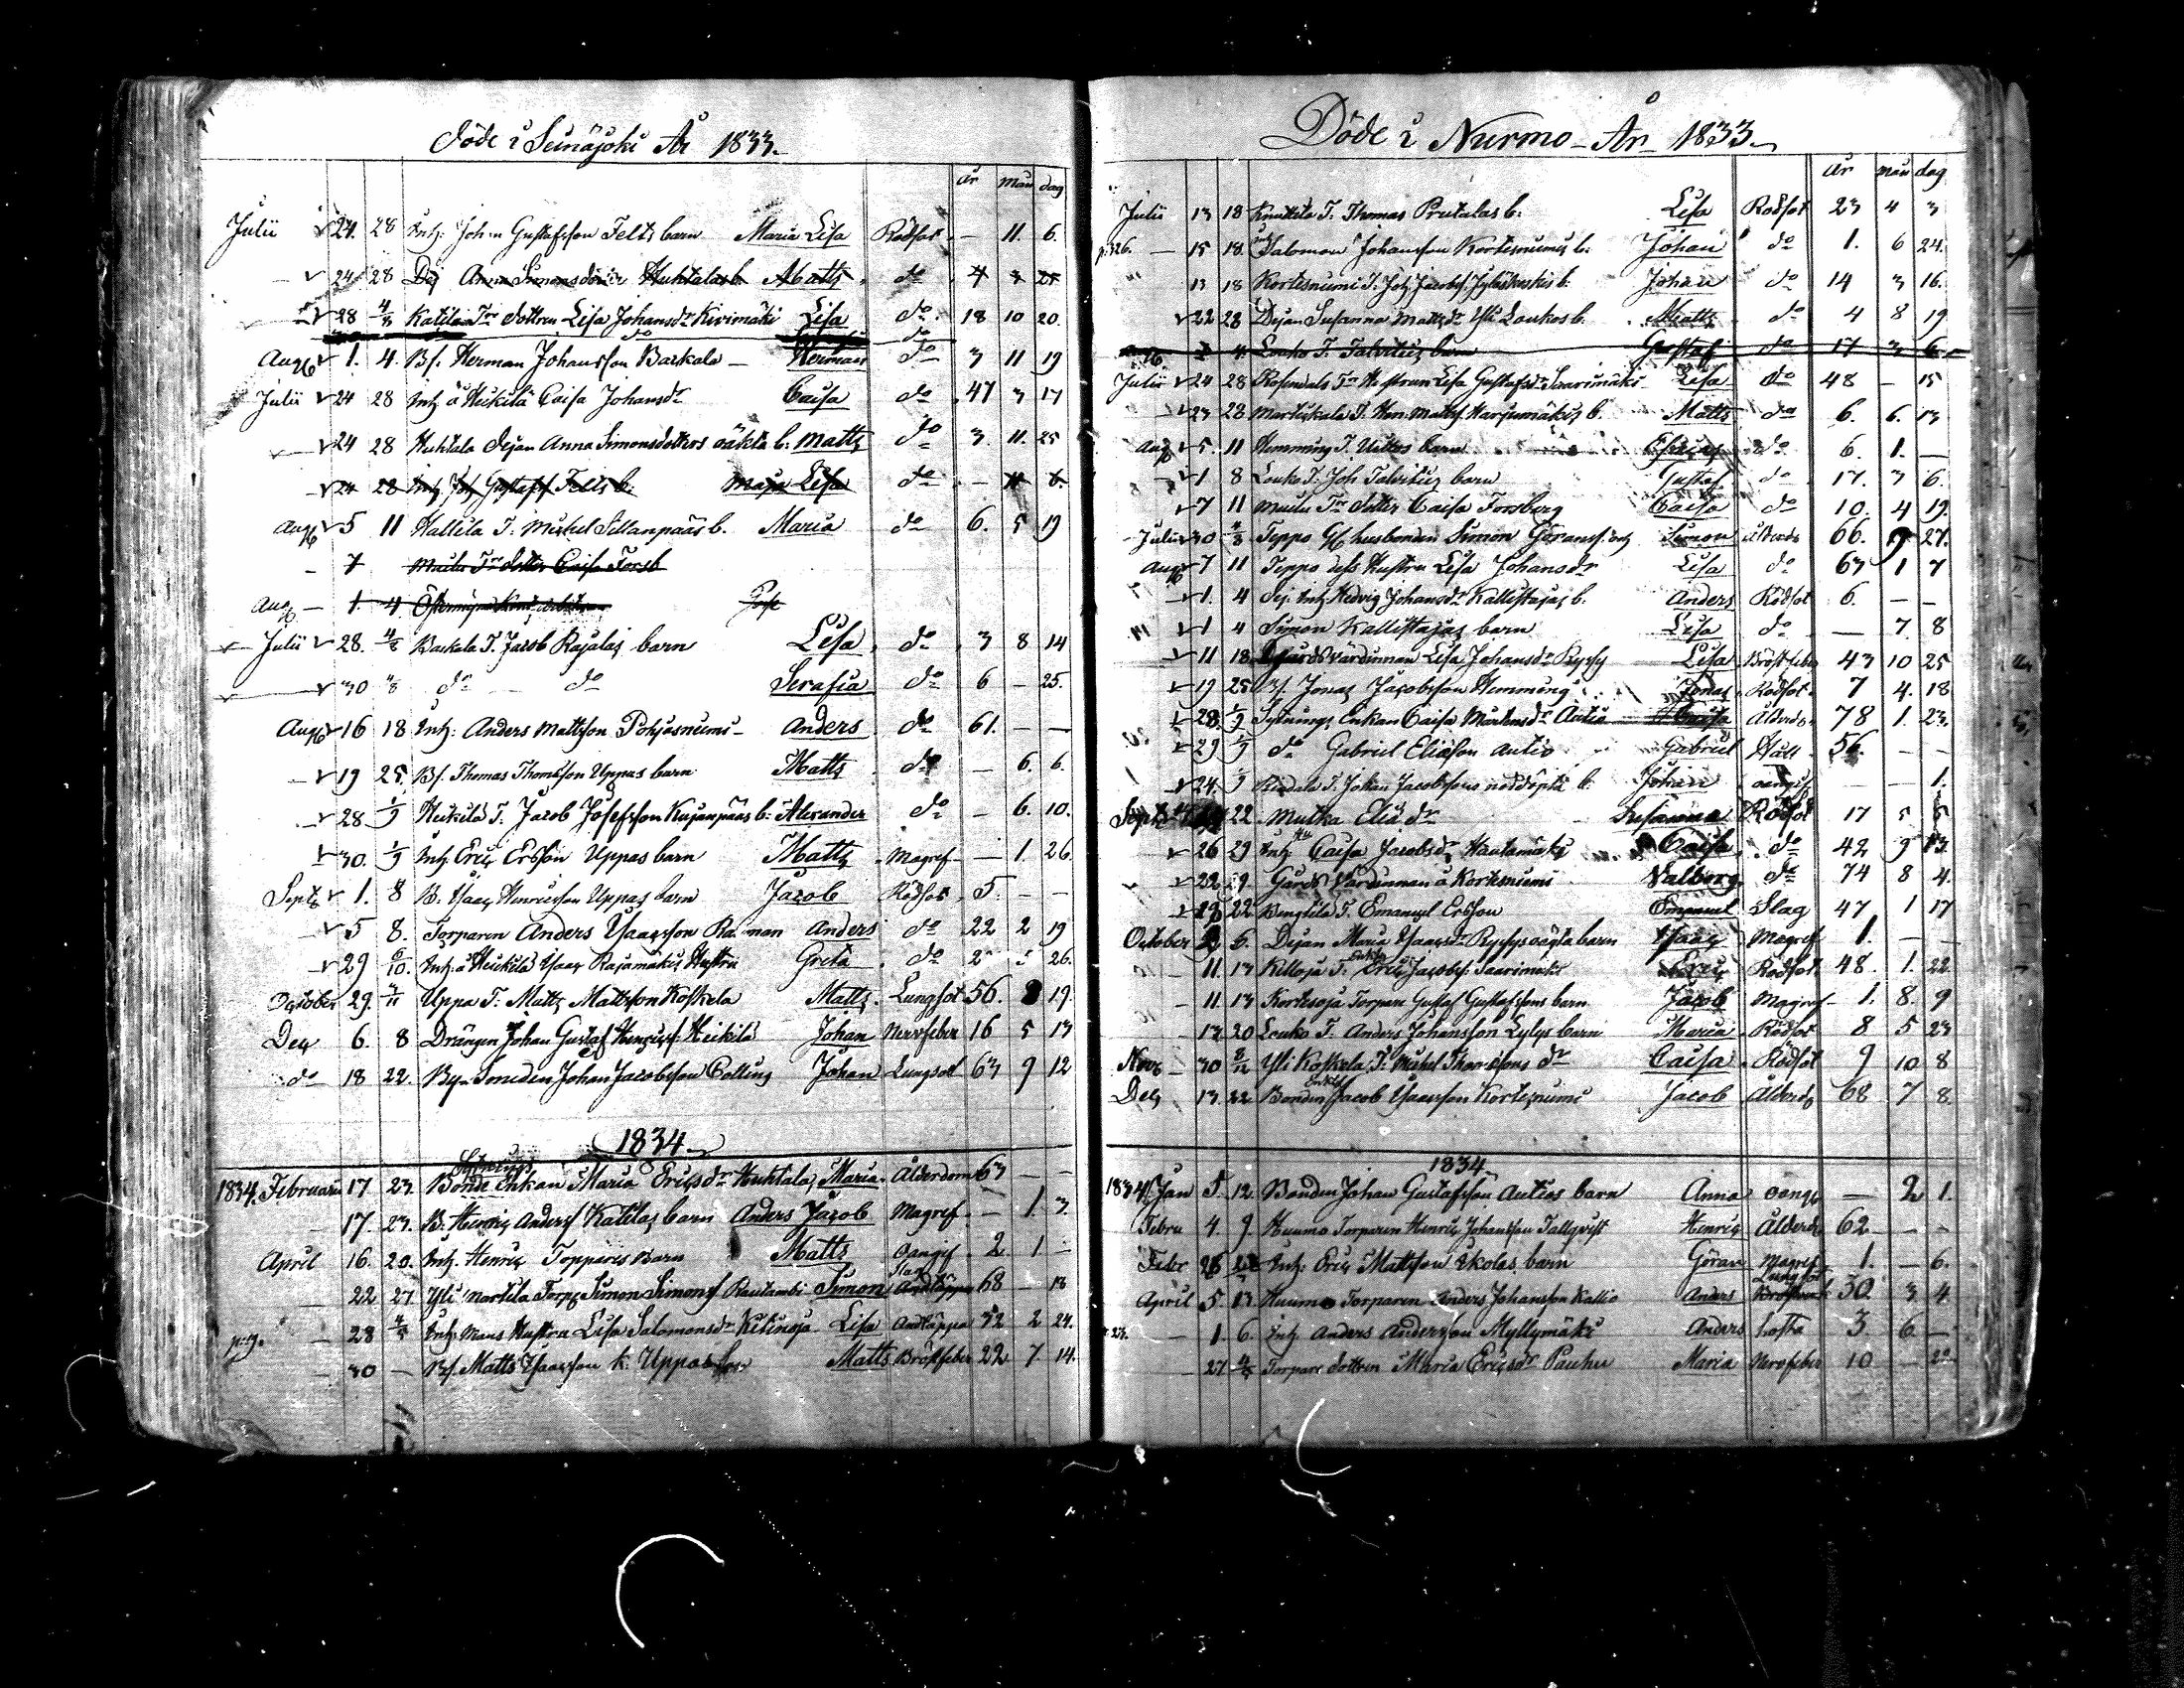 Döde i Seinäjoki År 1833.
år mån dag
Julii 24. 28 Inh: Johan Gustafsson Felts barn Maria Lisa Rödsot — 11. 6.
24 28 Dej Anna Simonsdotter Huhtalas b. Matts do 4 3 25
28 4/8 Katila Trs dottren Lisa Johansdr Kivimäki Lisa do 18 10 20.
Aug 1. 4. Bs. Herman Johansson Barkala Herman do 3 11 19
Julii 24 28 Inh å Heikilä Caisa Johansdr Caisa do 47 3 17
24 28 Huhtala dejan Anna Simonsdotters oäkta b: Matts do 3. 11. 25
24 28 Inh Joh Gustafs Felts b: Maja Lisa do — 11 6.
Aug 5 11 Hallila T: Michel Sillanpääs b. Maria do 6. 5 19
7 Multu Trs dotter Caisa Forsb
Aug 1. 4.
Julii 28. 4/8 Barkala T. Jacob Rajalas barn Lisa do 3 8 14
30 4/8 do do Serafia do 6 — 25.
Aug 16 18 Inh: Anders Mattsson Pohjasniemi Anders do 61. — —
19 25. Bs. Thomas Thomsson Uppas barn Matts do — 6. 6.
28 1/9 Heikilä T. Jacob Josefsson Kujanpääs b: Alexander do — 6. 10.
30. 1/9 Inh Eric Ersson Uppas barn Matts Magref — 1. 26.
Sept 1. 8 B. Isaac Henricsson Uppas barn Jacob Rödsot 5. — —
5 8. Torparen Anders Isaacsson Anders do 22 2 19
29 6/10. Inh å Heikilä Isaac Rajamäkis Hustru Greta do 26.
October 29. 3/11 Uppa T: Matts Mattsson Koskela Matts. Lungsot 56. 8 19.
Dec 6. 8 Drängen Johan Gustaf Henricss: Heikilä Johan Nervfeber 16 5 13
do 18 22. By Smeden Johan Jacobsson Colling Johan Lungsot 63 9 12
1834.
1834. Februarii 17 23. Bonde Enkan Maria Ericsdr Huhtala, Maria. Ålderdom 63 — —
17. 23. B. Henric Anders Katilas barn Anders Jacob Magref — 1. 3.
April 16. 20. Inh. Henric Topparis Barn Matts Oangif. 2. 1. —
22 27 Yli Martila Torp Simon Simons Rautambi Simon Slag 68 — 18
p:9. — 28 4/5 Inh. Mans Hustru Lisa Salomonsdr Kitinoja Lisa Andtäppa 52 2 24.
30 — Bs. Matts Isaacsson k: Uppa Matts Bröstfeber 22 7. 14.
Döde i Nurmo År 1833.
år mån dag
Julii 13 18 Knuttila T. Thomas Prutalas b. Lisa Rödsot 23 4 3
p:326. — 15 18. Salomon Johansson Kortesniemis b: Johan do 1. 6 24.
13 18 Kortesniemi T. Joh: Jacobs: Jyläskoskis b: Johan do 14 3 16.
22 28 Dejan Susanna Mattsdr Yli Loukos b. Matts do 4 8 19
Louko T. Talvitiés barn Gustaf do 17 3 6
Julii 24 28 Rosendals Trs Hustrun Lisa Gustafsdr Saarimäki Lisa do 48 — 15
23 28 Martikala T. Hen. Matts Harjumäkis b. Matts do 6. 6. 13
Aug 5. 11 Hemming T. barn do 6. 1. —
1 8 Louko T: Joh Talvitiés barn Gustaf do 17. 3 6.
7 11 Multu Trs dotter Caisa Forsberg Caisa do 10. 4 19.
Julii 30 4/8 Teppo husbonden Simon Göransson Simon Ålderdo 66. 9 27.
Aug 7 11 Teppo dess Hustru Lisa Johansdr Lisa do 63 1 7
1. 4 Inh Hedvig Johansdr Kallistajas b. Anders Rödsot 6. — —
1 4 Simon Kallistajas barn Lisa do — 7. 8
11 18 Gårdsvärdinnan Lisa Johansdr Ryssy Lisa Bröstfeber 43 10 25
19 25 Bs. Jonas Jacobsson Hemming Jonas Rödsot 7 4. 18
28. 1/9 Sytnings Enkan Caisa Mårtensdr Autio Caisa Ålderdo. 78 1. 23.
29 1/9 do Gabriel Eliasson Autio Gabriel Håll 56. — —
24. 9 T. Johan Jacobssons nöddöpta b. Johan oangif — — 1.
Sept 22 Mutka Elia dr Susanna Rödsot 17 5 5
26 29 Inh Caisa Jacobsdr Hautamäki Caisa do 42 9 13.
22 29. Gårds Värdinnan å Kortesniemi Valborg do 74 8 4.
22 Bengtila T. Emanuel Ersson Emanuel Slag 47 1 17
October 6. Dejan Maria Isaacsdr Ryssys oägta barn Isaac Magref 1. — —
11. 13 Killoja T. Eric Jacobss: Saarimäki Eric Rödsot 48. 1. 22
11. 13 Kortesoja Torpare Gustaf Gustafssons barn Jacob Magref 1. 8. 9
13 20 Louko T. Anders Johansson Lylys barn Maria Rödsot 8 5 23
Nov 30 8/12 Yli Koskela T: Michel Thomssons dr Caisa Rödsot 9 10 8
Dec 13. 22 Bonden Jacob Isaacsson Kortesniemi Jacob Ålderdo 68 7 8.
1834
1834/Jan 5. 12. Bonden Johan Gustafsson Autios barn Anna oangif — 2 1.
Febru 4 9. Huumo Torparen Henric Johansson Tallqvist Henric Ålderdo 62 — —
Febr Inh: Eric Mattsson Ekolas barn Göran Magref 1. — 6.
April 5 13 Huumo Torparen Anders Johansson Kallio Anders Lungsot 30. 3 4
1. 6. Inh Anders Andersson Myllymäki Anders hosta 3. 6 —
27 4/5 Torpare dottren Maria Ericsdr Pauhu Maria Nervfeber 10 — 20